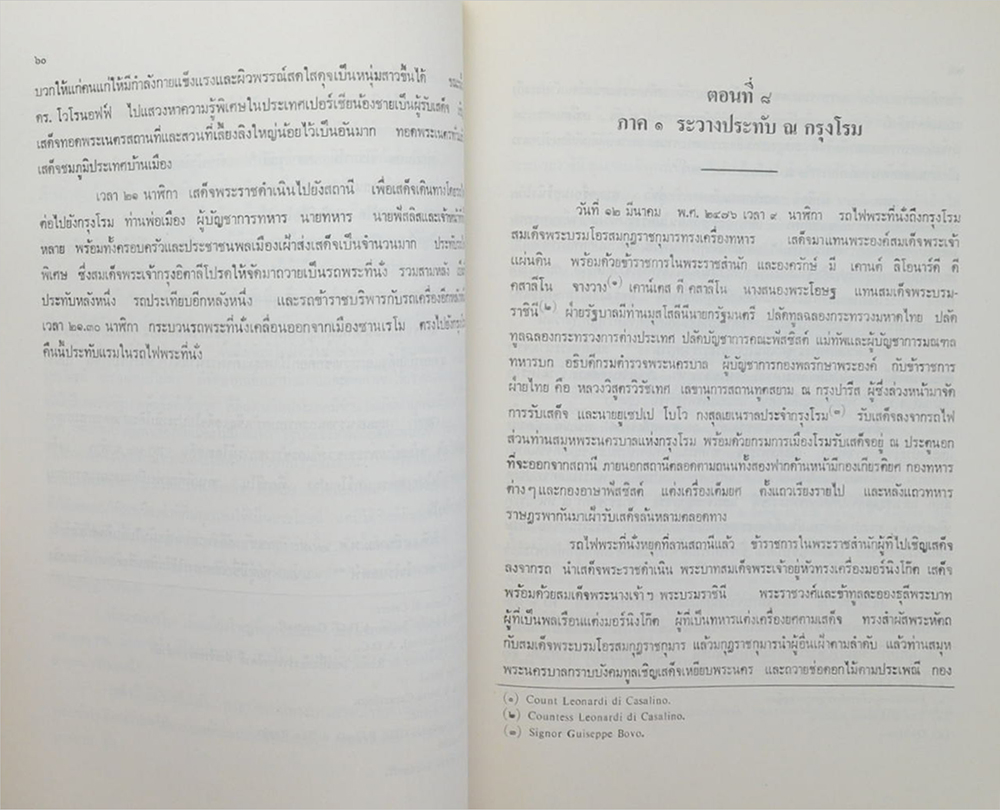 ๖๐
บวกให้แก่คนแก่ให้มีกำลังกายแข็งแรงและผิวพรรณ์สดใสดุจเป็นหนุ่มสาวขึ้นได้
ดร. โวโรนอฟฟ์ ไปแสวงหาความรู้พิเศษในประเทศเปอร์เซียน้องชายเป็นผู้รับเสด็จ
เสด็จทอดพระเนตรสถานที่และสวนที่เลี้ยงลิงใหญ่น้อยไว้เป็นอันมาก ทอดพระเนตร
เสด็จชมภูมิประเทศบ้านเมือง
เวลา ๒๑ นาฬิกา เสด็จพระราชดำเนินไปยังสถานี เพื่อเสด็จเดินทาง
ต่อไปยังกรุงโรม ท่านพ่อเมือง ผู้บัญชาการทหาร นายทหาร นายฟัสลิสและ
หลาย พร้อมทั้งครอบครัวและประชาชนพลเมืองเฝ้าส่งเสด็จเป็นจำนวนมาก
พิเศษ ซึ่งสมเด็จพระเจ้ากรุงอิตาลีโปรดให้จัดมาถวายเป็นรถพระที่นั่ง รวมสามหลัง
ประทับหลังหนึ่ง รถประเทียบอีกหลังหนึ่ง และรถข้าราชบริพารกับรถเครื่อง
เวลา ๒๑.๓๐ นาฬิกา กระบวนรถพระที่นั่งเคลื่อนออกจากเมืองซานเรโม ตรงไปยัง
คืนนี้ประทับแรมในรถไฟพระที่นั่ง
ตอนที่ ๘
ภาค ๑ ระวางประทับ ณ กรุงโรม
วันที่ ๑๒ มีนาคม พ.ศ. ๒๔๗๖ เวลา ๙ นาฬิกา รถไฟพระที่นั่งถึงกรุงโรม
สมเด็จพระบรมโอรสมกุฎราชกุมารทรงเครื่องทหาร เสด็จมาแทนพระองค์สมเด็จพระเจ้า
แผ่นดิน พร้อมด้วยข้าราชการในพระราชสำนัก และองครักษ์ มี เคานต์ ลิโอนาร์ดี ดี
คสาลีโน จางวาง(๑) เคาน์เตส ดี คสาลีโน นางสนองพระโอษฐ แทนสมเด็จพระบรม-
ราชินี(๒) ฝ่ายรัฐบาลมีท่านมุสโสลีนีนายกรัฐมนตรี ปลัดทูลฉลองกระทรวงมหาดไทย ปลัด
ทูลฉลองกระทรวงการต่างประเทศ ปลัดบัญชาการคณะฟัสซิสต์ แม่ทัพและผู้บัญชาการมณฑล
ทหารบก อธิบดีกรมตำรวจพระนครบาล ผู้บัญชาการกองพลรักษาพระองค์ กับข้าราชการ
ฝ่ายไทย คือ หลวงวิสูตรวิรัชเทศ เลขานุการสถานทูตสยาม ณ กรุงปารีส ผู้ซึ่งล่วงหน้ามาจัด
การรับเสด็จ และนายยูเซปเป โบโว กงสุลเยเนราลประจำกรุงโรม(๓) รับเสด็จลงจากรถไฟ
ส่วนท่านสมุหพระนครบาลแห่งกรุงโรม พร้อมด้วยกรมการเมืองโรมรับเสด็จอยู่ ณ ประตูนอก
ที่จะออกจากสถานี ภายนอกสถานีตลอดตามถนนทั้งสองฟากด้านหน้ามีกองเกียรติยศ กองทหาร
ต่างๆและกองอาษาฟัสซิสต์ แต่งเครื่องเต็มยศ ตั้งแถวเรียงรายไป และหลังแถวทหาร
ราษฎรพากันมาเฝ้ารับเสด็จล้นหลามตลอดทาง
รถไฟพระที่นั่งหยุดที่ลานสถานีแล้ว ข้าราชการในพระราชสำนักผู้ที่ไปเชิญเสด็จ
ลงจากรถ นำเสด็จพระราชดำเนิน พระบาทสมเด็จพระเจ้าอยู่หัวทรงเครื่องมอร์นิงโก๊ต เสด็จ
พร้อมด้วยสมเด็จพระนางเจ้าฯ พระบรมราชินี พระราชวงศ์และข้าทูลละอองธุลีพระบาท
ผู้ที่เป็นพลเรือนแต่งมอร์นิงโก๊ต ผู้ที่เป็นทหารแต่งเครื่องยศตามเสด็จ ทรงสำผัสพระหัตถ
กับสมเด็จพระบรมโอรสมกุฎราชกุมาร แล้วมกุฎราชกุมารนำผู้อื่นเฝ้าตามลำดับ แล้วท่านสมุห
พระนครบาลกราบบังคมทูลเชิญเสด็จเหยียบพระนคร และถวายช่อดอกไม้ตามประเพณี กอง
(๑) Count Leonardi di Casalino.
(๒) Countess Leonardi di Casalino.
(๓) Signor Guiseppe Bovo.